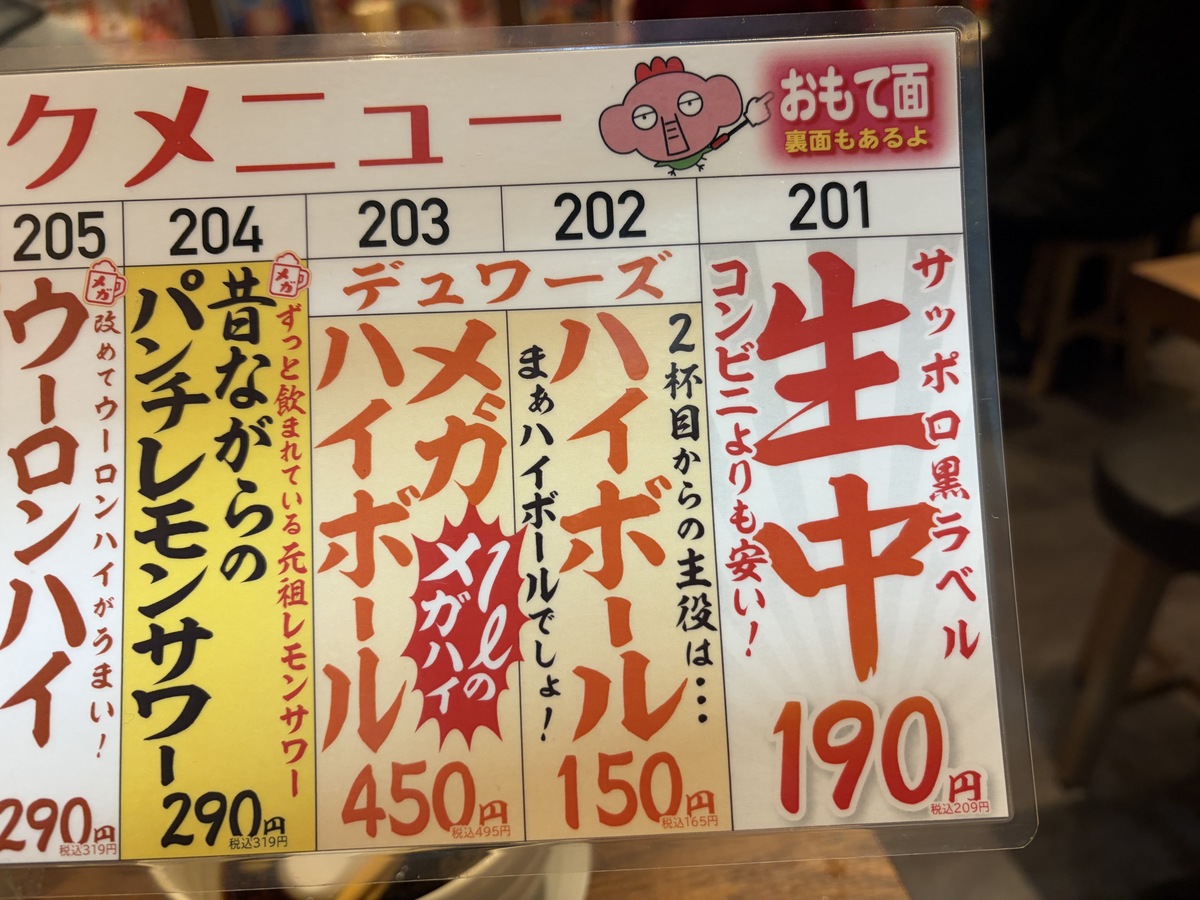 クメニュー
おもて面
裏面もあるよ
201
サッポロ黒ラベル
生中
コンビニよりも安い!
190円
税込209円
202
203
デュワーズ
2杯目からの主役は…
ハイボール
まぁハイボールでしょ!
150円
税込165円
メガ
ハイボール
1ℓの
メガハイ
450円
税込495円
204
メガ
ずっと飲まれている元祖レモンサワー
昔ながらの
パンチレモンサワー
290円
税込319円
205
メガ
改めてウーロンハイがうまい!
ウーロンハイ
290円
税込319円